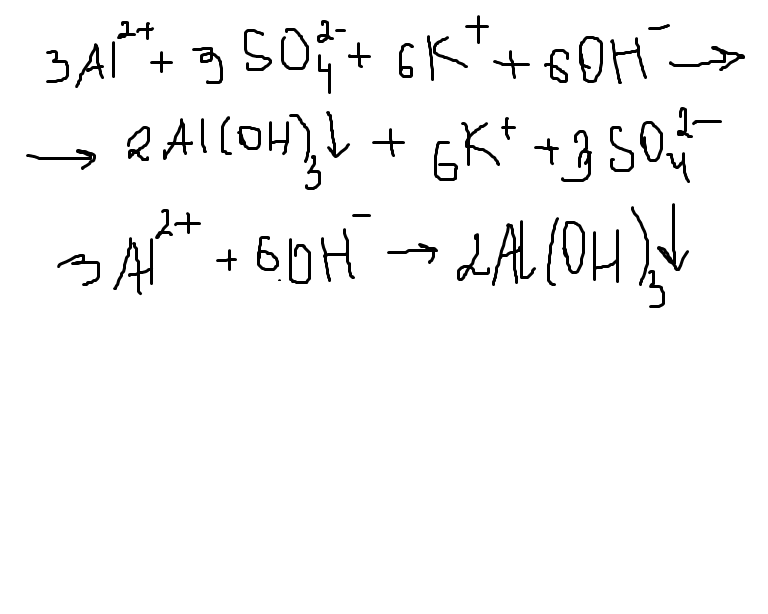 3Al²⁺ + 3SO₄²⁻ + 6K⁺ + 6OH⁻ →
→ 2Al(OH)₃↓ + 6K⁺ + 3SO₄²⁻
3Al²⁺ + 6OH⁻ → 2Al(OH)₃↓